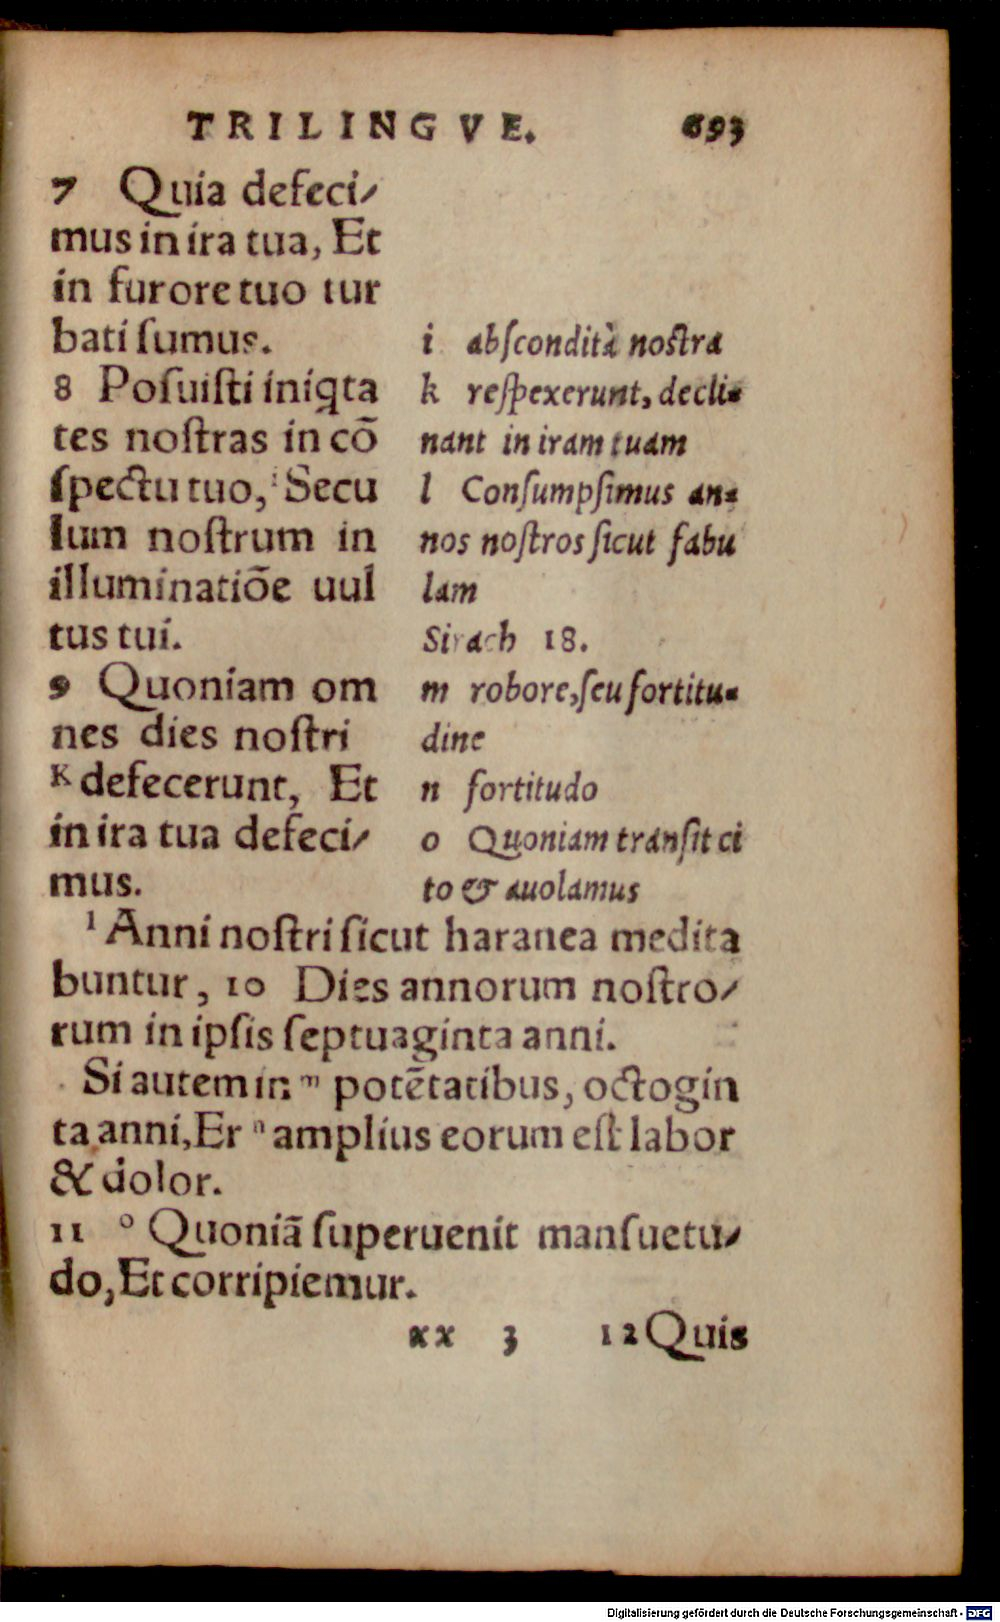 TRILINGVE. 693
7 Quia defeci/
mus in ira tua, Et
in furore tuo tur
bati sumus.
8 Posuisti iniqta
tes nostras in cō
spectu tuo, ⁱ Secu
lum nostrum in
illuminatiōe uul
tus tui.
9 Quoniam om
nes dies nostri
ᴷ defecerunt, Et
in ira tua defeci/
mus.
i abscondita nostra
k respexerunt, decli-
nant in iram tuam
l Consumpsimus an-
nos nostros sicut fabu
lam
Sirach 18.
m robore, seu fortitu-
dine
n fortitudo
o Quoniam transit ci
to & auolamus
ˡ Anni nostri sicut haranea medita
buntur, 10 Dies annorum nostro/
rum in ipsis septuaginta anni.
Si autem in ᵐ potētatibus, octogin
ta anni, Et ⁿ amplius eorum est labor
& dolor.
11 ᵒ Quoniā superuenit mansuetu/
do, Et corripiemur.
xx 3 12 Quis
Digitalisierung gefördert durch die Deutsche Forschungsgemeinschaft - DFG